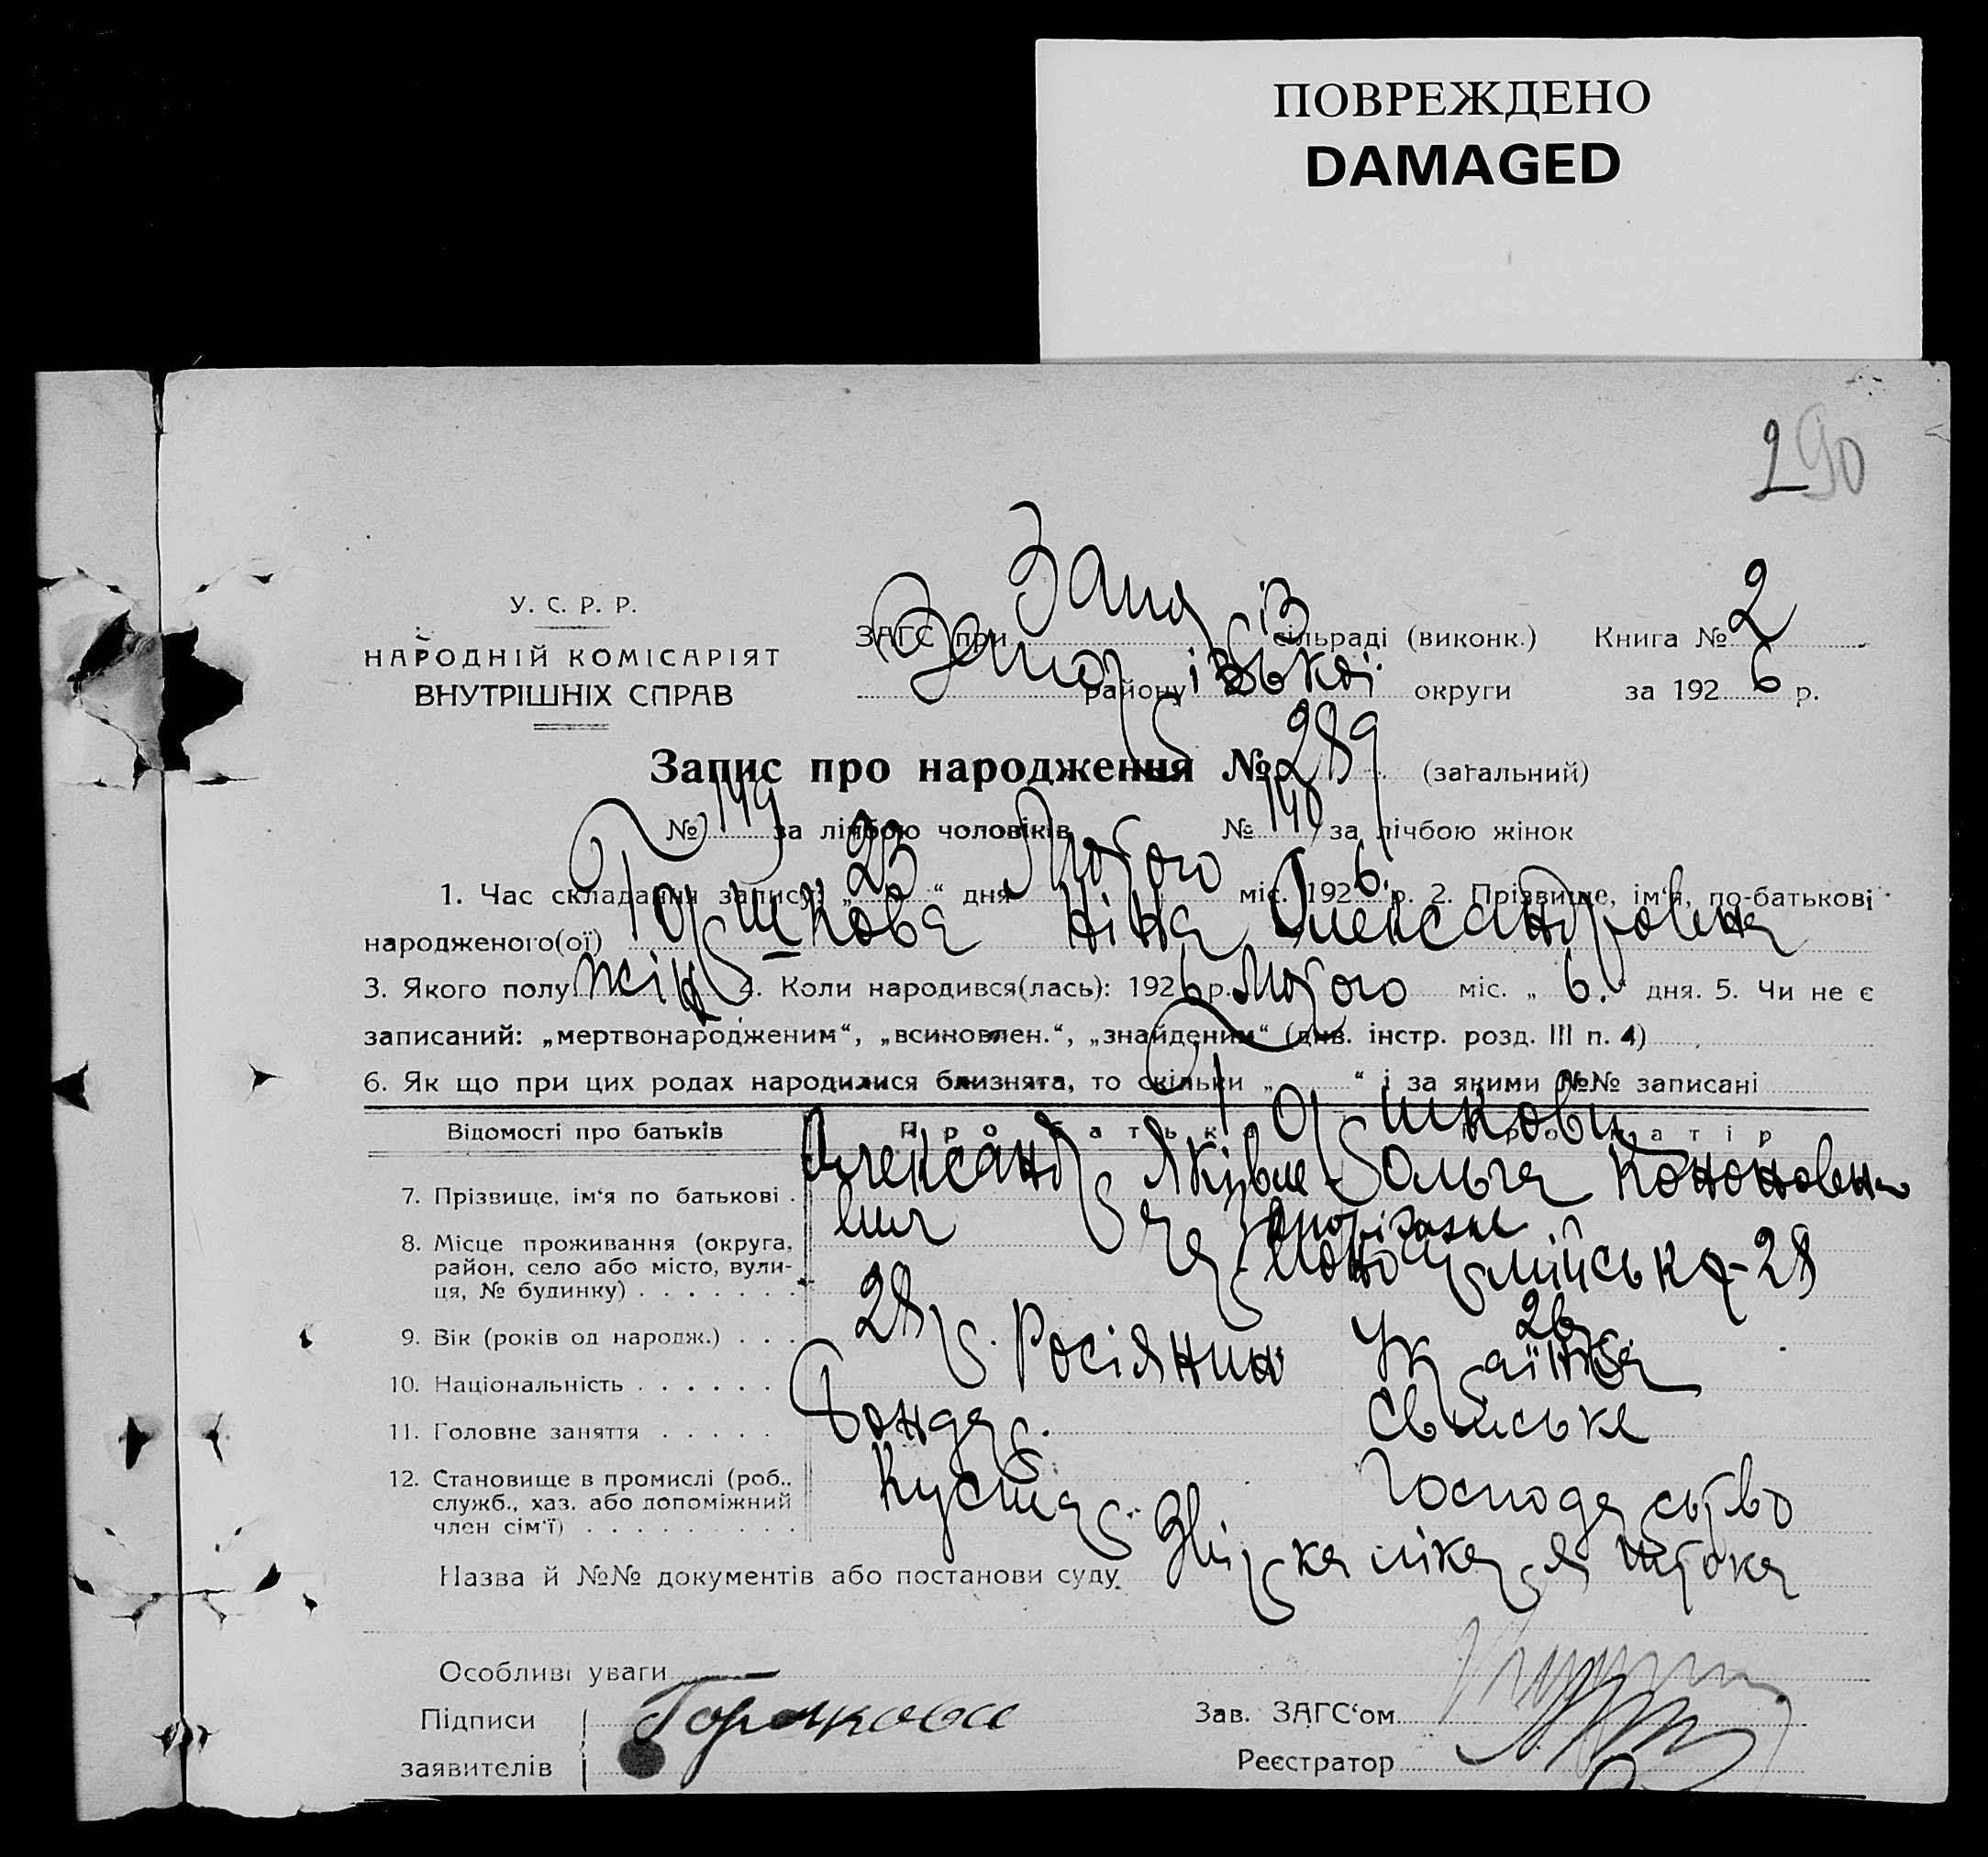 ПОВРЕЖДЕНО
DAMAGED
290
У. С. Р. Р.
НАРОДНІЙ КОМІСАРІЯТ
ВНУТРІШНІХ СПРАВ
ЗАГС при сільраді (виконк.) Книга № 2
району округи за 1926 р.
Запис про народження № 289 (загальний)
№ 149 за лічбою чоловіків № 140 за лічбою жінок
1. Час складання запису: „23“ дня Лютого міс. 1926 р. 2. Прізвище, ім‘я, по-батькові
народженого(ої) Горшкова Ніна Олександровна
3. Якого полу жін 4. Коли народився(лась): 1926 р. Лютого міс. „6.“ дня. 5. Чи не є
записаний: „мертвонародженим“, „всиновлен.“, „знайденим“ (див. інстр. розд. III п. 4)
6. Як що при цих родах народилися близнята, то скільки „ “ і за якими №№ записані
Горшкови
Відомості про батьків Про батька Про матір
7. Прізвище, ім‘я по батькові . Олександр Яківле- Ольга Кононовна
вич
8. Місце проживання (округа,
район, село або місто, вули-
ця, № будинку) . . . . . . . 28
9. Вік (років од народж.) . . . 28 р. 26 р.
10. Національність . . . . . . Росіянин Українка
11. Головне заняття . . . . . Бондар. Свійське
12. Становище в промислі (роб.,
служб., хаз. або допоміжний
член сім‘ї) . . . . . . . . . Кустар. Господарство
Назва й №№ документів або постанови суду лікаря
Особливі уваги
Підписи
заявителів Горшкова
Зав. ЗАГС‘ом
Реєстратор